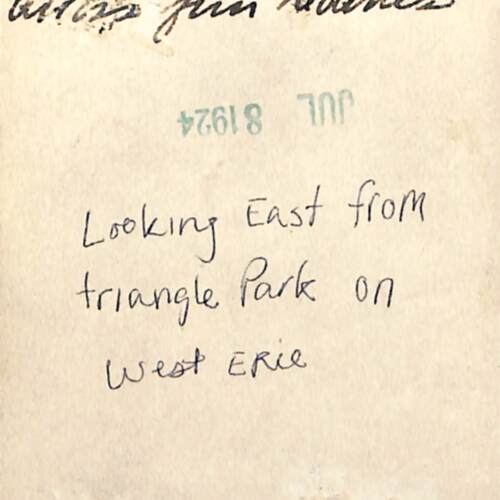 across
JUL 8 1924
Looking East from
triangle Park on
West Erie